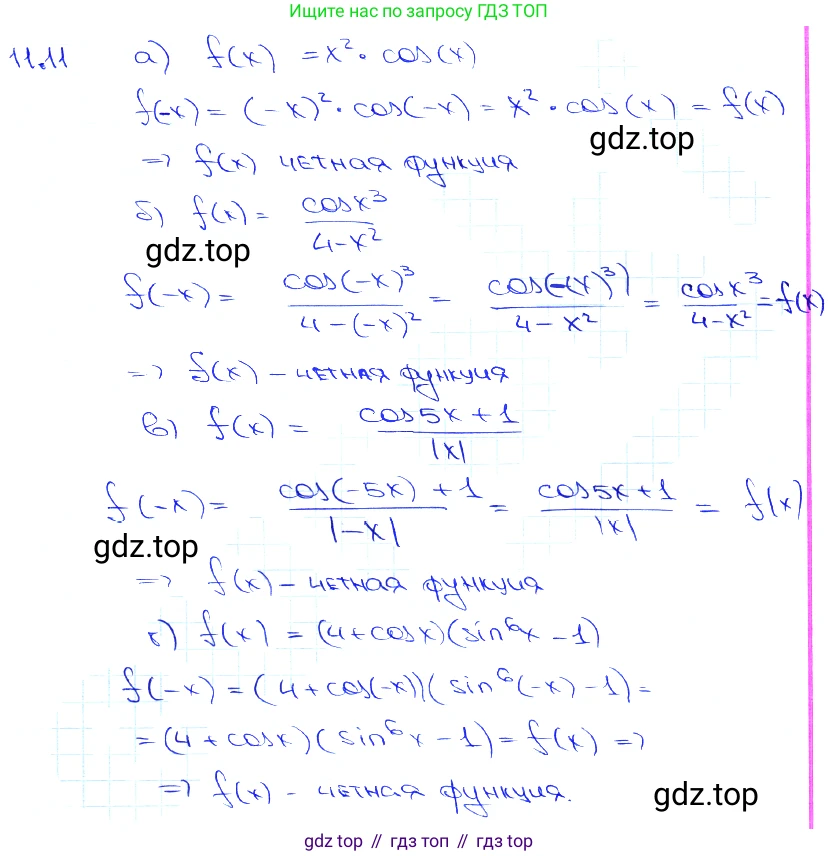 Ищите нас по запросу ГДЗ ТОП
11.11 а) f(x) = x² · cos(x)
f(-x) = (-x)² · cos(-x) = x² · cos(x) = f(x)
gdz.top
=> f(x) четная функция
б) f(x) = cosx³/4-x²
gdz.top
f(-x) = cos(-x)³/4-(-x)² = cos(-(x)³)/4-x² = cosx³/4-x² = f(x)
=> f(x) - четная функция
в) f(x) = cos5x+1/|x|
f(-x) = cos(-5x)+1/|-x| = cos5x+1/|x| = f(x)
gdz.top
=> f(x) - четная функция
г) f(x) = (4+cosx)(sin⁶x-1)
f(-x) = (4+cos(-x))(sin⁶(-x)-1) =
= (4+cosx)(sin⁶x-1) = f(x) =>
=> f(x) - четная функция.
gdz.top
gdz top // гдз топ // gdz top